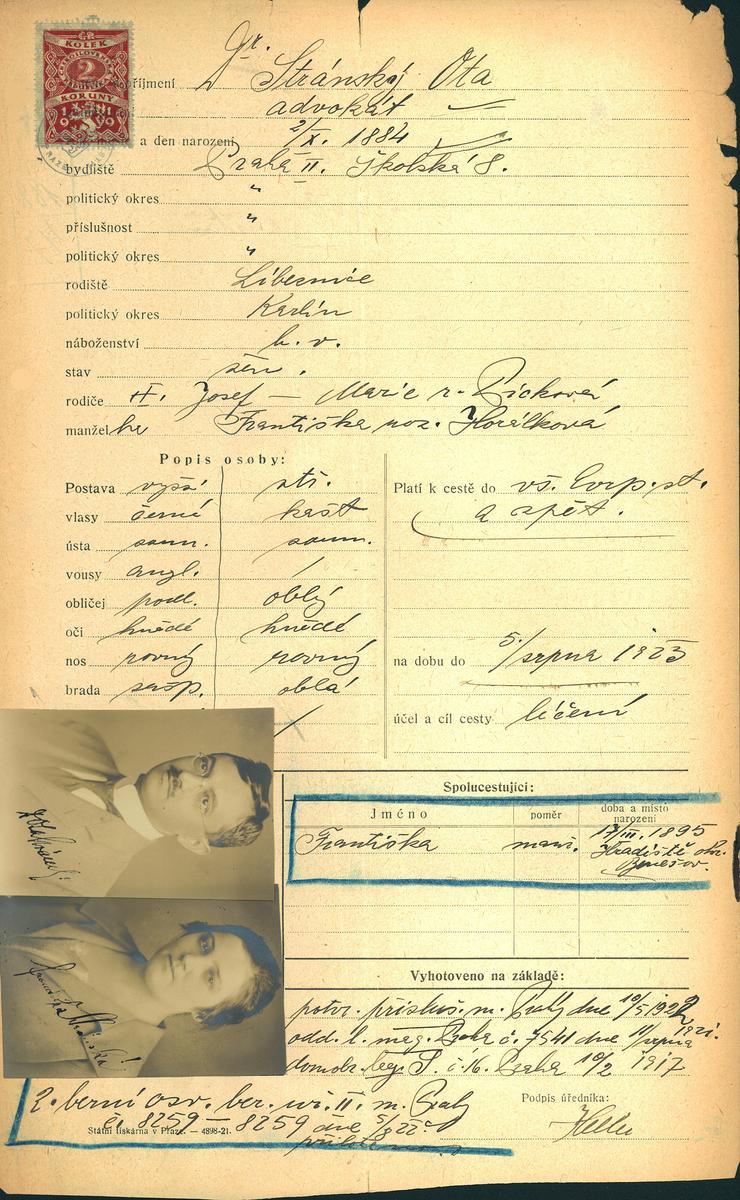 Č.R.
KOLEK
2
KORUNY
1919
příjmení Dr. Stránský Ota
advokát
a den narození 2/X. 1884
bydliště Praha II. Školská 8.
politický okres "
příslušnost "
politický okres "
rodiště Libeznice
politický okres Karlín
náboženství b. v.
stav žen.
rodiče Josef — Marie r. Picková
manžel ka Františka roz. Horálková
Popis osoby:
Postava vyšší stř.
vlasy černé kašt
ústa soum. soum.
vousy angl. /
obličej podl. oblý
oči hnědé hnědé
nos rovný rovný
brada oblá
Platí k cestě do vš. Evrp. st.
a zpět.
na dobu do 5./srpna 1923
účel a cíl cesty léčení
Spolucestující:
Jméno poměr doba a místo narození
Františka manž. 17/III. 1895
Hradiště okr.
Benešov.
Vyhotoveno na základě:
potvr. přísluš. m. Prahy dne 10/5 1922
odd. l. mag. Praha č. 7541 dne 11/srpna 1921.
domobr. leg. S. č. 16. Praha 10/2 1917
2. berní osv. ber. úř. II. m. Prahy
č. 8259 — 8259 dne 5/8 22.
Podpis úředníka:
Státní tiskárna v Praze. — 4898-21.